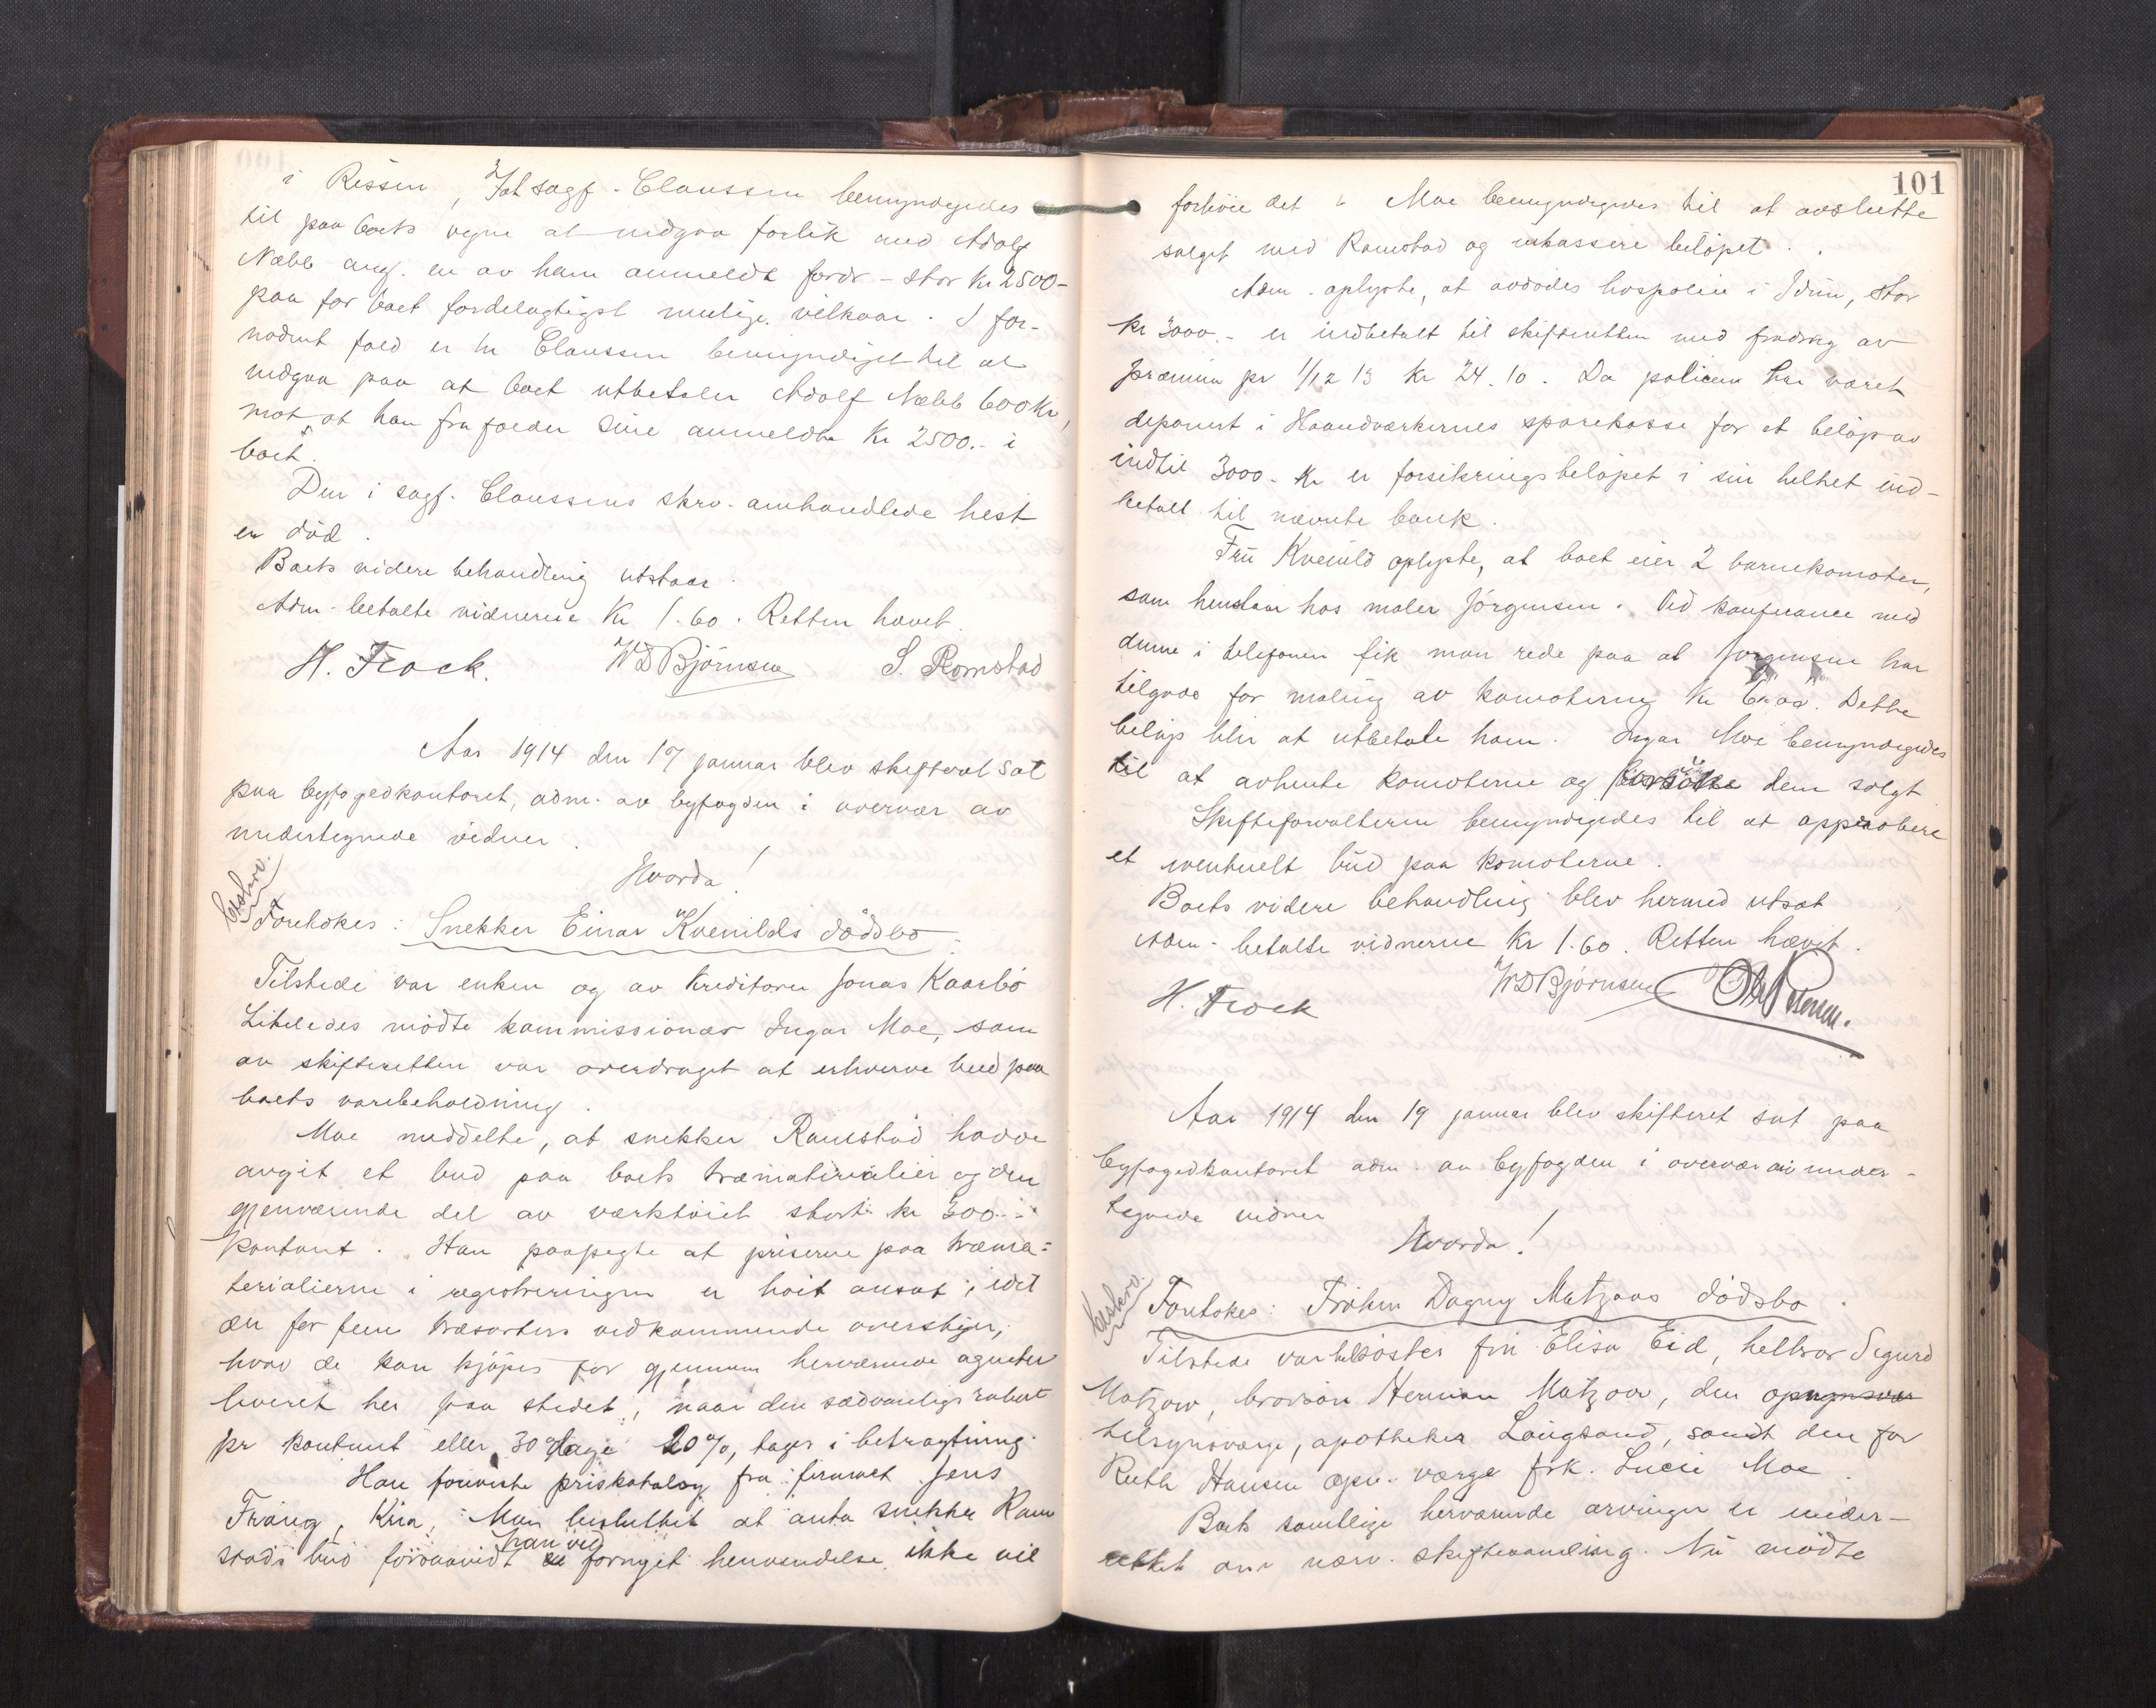 i Rissen, at sagf. Claussen bemyndigedes
til paa boets vegne at indgaa forlik med Adolf
Næbb ang. en av ham anmeldt fordr - stor kr 2500-
paa for boet fordelagtigst mulige vilkaar. I for-
nødent fald er hr Claussen bemyndiget til at
indgaa paa at boet utbetaler Adolf Næbb 600 kr,
mot, at han frafalder sine anmeldte kr 2500.- i
boet.
Den i sagf. Claussens skrv. omhandlede hest
er død.
Boets videre behandling utstaar.
Adm. betalte vidnerne kr 1.60. Retten hævet.
H. Frock. W D Bjørnsen S. Romstad
Aar 1914 den 17 januar blev skifteret sat
paa byfogedkontoret, adm. av byfogden i overvær av
undertegnede vidner.
Hvorda!
beskrv.
Foretokes: Snekker Einar Kvenilds dødsbo.
Tilstede var enken og av kreditorer Jonas Kaarbø
Likeledes mødte kommissionær Ingar Moe, som
av skifteretten var overdraget at erhverve bud paa
boets varebeholdning.
Moe meddelte, at snekker Ramstad havde
avgit et bud paa boets træmaterialier og den
gjenværende del av verktøiet stort kr 300.-
kontant. Han paapegte at priserne paa træma=
terialierne i registreringen er høit ansat, idet
de for flere træsorters vedkommende overstiger,
hvad de kan kjøpes for gjennem herværende agenter
leveret her paa stedet, naar den sædvanlige rabat
pr kontant eller 30 dage 20%, tages i betragtning.
Han foreviste priskatalog fra firmaet Jens
Frang, Kr.a, Man besluttet at anta snekker Ram
stads bud forsaavidt han ved fornyet henvendelse ikke vil
101
forhøie det. Moe bemyndigedes til at avslutte
salget med Ramstad og inkassere beløpet.
Adm. oplyste, at avdødes livspolice i Idun, stor
kr 3000.- er indbetalt til skifteretten med fradrag av
præmie pr 1/12 13 kr 24.10. Da policen har været
deponert i Haandværkernes sparekasse for et beløp av
indtil 3000.- kr er forsikringsbeløpet i sin helhet ind-
betalt til nævnte bank.
Fru Kvenild oplyste, at boet eier 2 barnekomoder,
som henstaar hos maler Jørgensen. Ved konferance med
denne i telefonen fik man rede paa at Jørgensen har
tilgode for maling av komoderne kr 6.00. Dette
beløp blir at utbetale ham. Ingar Moe bemyndigedes
til at avhente komoderne og forsøke dem solgt
Skifteforvalteren bemyndigedes til at approbere
et eventuelt bud paa komoderne.
Boets videre behandling blev hermed utsat
Adm. betalte vidnerne kr 1.60. Retten hævet.
H. Frock W D Bjørnsen
Aar 1914 den 19 januar blev skifteret sat paa
byfogedkontoret adm. av byfogden i overvær av under-
tegnede vidner
Hvorda!
beskrv.
Foretokes: Frøken Dagny Matzows dødsbo.
Tilstede var helsøster fru Elisa Eid, helbror Sigurd
Matzow, brorsøn Herman Matzow, den
tilsynsværge, apotheker Langsand, samt den for
Ruth Hansen opn. værge frk. Lucie Moe.
Boets samtlige herværende arvinger er under-
rettet om nærv. skiftesamling. Nu mødte